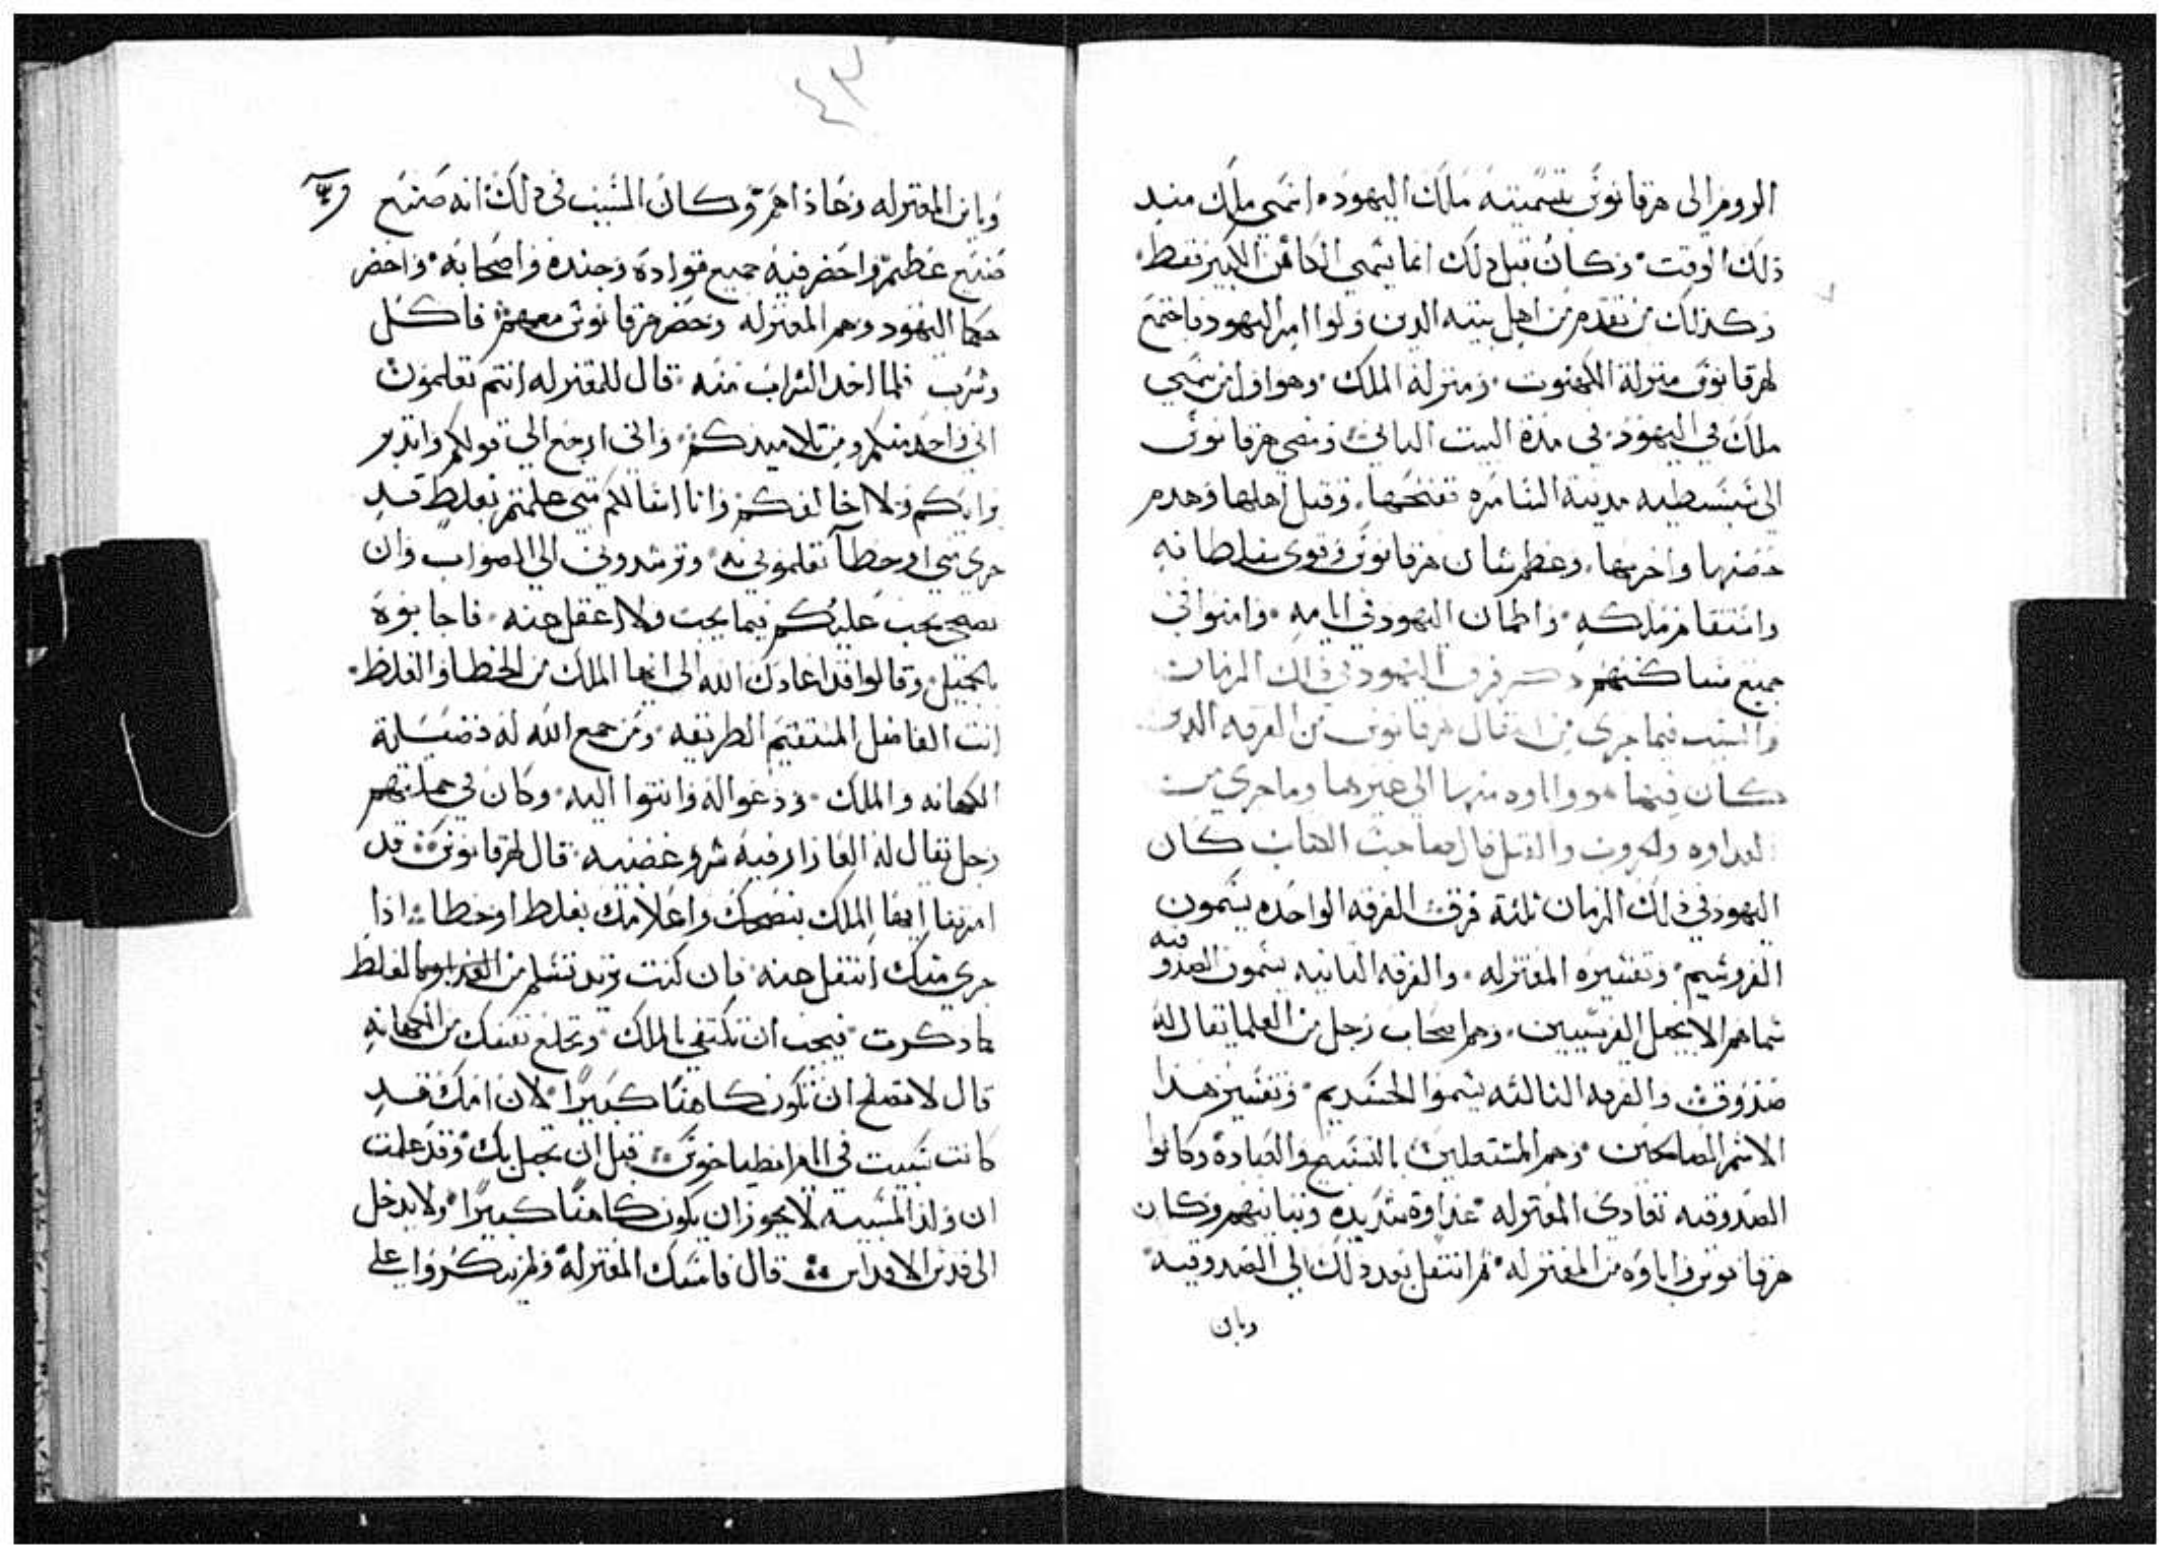 الروم الى هرقانوس بتسميته ملك اليهود انسمي ملك منذ
ذلك الوقت وكان قبل ذلك انما يسمي الكاهن الكبير فقط
وكذلك من تقدم من اهل بيته الدين ولوا امر اليهود فاجتمع
لهرقانوس منزلة الكهنوت ومنزلة الملك وهو اول من سمي
ملك في اليهود في مدة البيت الثاني ومضي هرقانوس
الى سبسطيه مدينة السامره ففتحها وقتل اهلها وهدم
حصنها واخربها وعظم شان هرقانوس وقوى سلطانه
واستقام ملكه واطمان اليهود في ايامه وامنوا في
جميع مساكنهم ذكر فرق اليهود في ذلك الزمان
والسبب فيما جرى من انتقال هرقانوس من الفرقه الدى
كان فيها هو واباوه منها الى غيرها وما جرى من
العداوه والحروب والقتل قال صاحب الكتاب كان
اليهود في ذلك الزمان ثلثة فرق الفرقه الواحده يسمون
الفروشيم وتفسيره المعتزله والفرقه الثانيه يسمون الصدوقيه
سماهم الانجيل الفريسيين وهم اصحاب رجل من العلما يقال له
صدوق والفرقه الثالثه يسموا الحسديم وتفسير هدا
الاسم الصالحين وهم المشتغلين بالتسبيح والعبادة وكانوا
الصدوقيه تعادى المعتزله عداوة شديده وتباينهم وكان
هرقانوس واباوه من المعتزله ثم انتقل بعد ذلك الى الصدوقيه
وباين
٤٣
وباين المعتزله وعاداهم وكان السبب في ذلك انه صنع
صنيع عظيم واحضر فيه جميع قواده وجنده واصحابه واحضر
حكما اليهود وهم المعتزله وحضر هرقانوس معهم فاكل
وشرب فلما اخد الشراب منه قال للمعتزله انتم تعلمون
اني واحد منكم ومن تلاميدكم واني ارجع الى قولكم واتدبر
برايكم ولا اخالفكم وانا اسالكم متى علمتم بغلط قد
جري مني او خطا تعلموني به وترشدوني الى الصواب وان
نصحي يجب عليكم فيما يجب ولا اغفل عنه فاجابوه
بالجميل وقالوا قد اعادك الله الى ايها الملك من الخطا والغلط
انت الفاضل المستقيم الطريقه ومن جمع الله له فضيلة
الكهانه والملك ودعوا له واثنوا اليه وكان في جملتهم
رجل يقال له العازار فيه شر وغضبه قال لهرقانوس قد
امرتنا ايها الملك بنصحك واعلامك بغلط او خطا اذا
جري منك انتقل عنه فان كنت تريد تسلم من الغلط
كما دكرت فيجب ان تكتفي بالملك وتخلع نفسك من الكهانه
قال لا تصلح ان تكون كاهنا كبيرا لان امك قد
كانت سبيت في ايام انطياخوس قبل ان تحبل بك وقد علمت
ان ولد المسبيه لا يجوز ان يكون كاهنا كبيرا ولا يدخل
الى قدس الاقداس قال فامسك المعتزله ولم ينكروا على